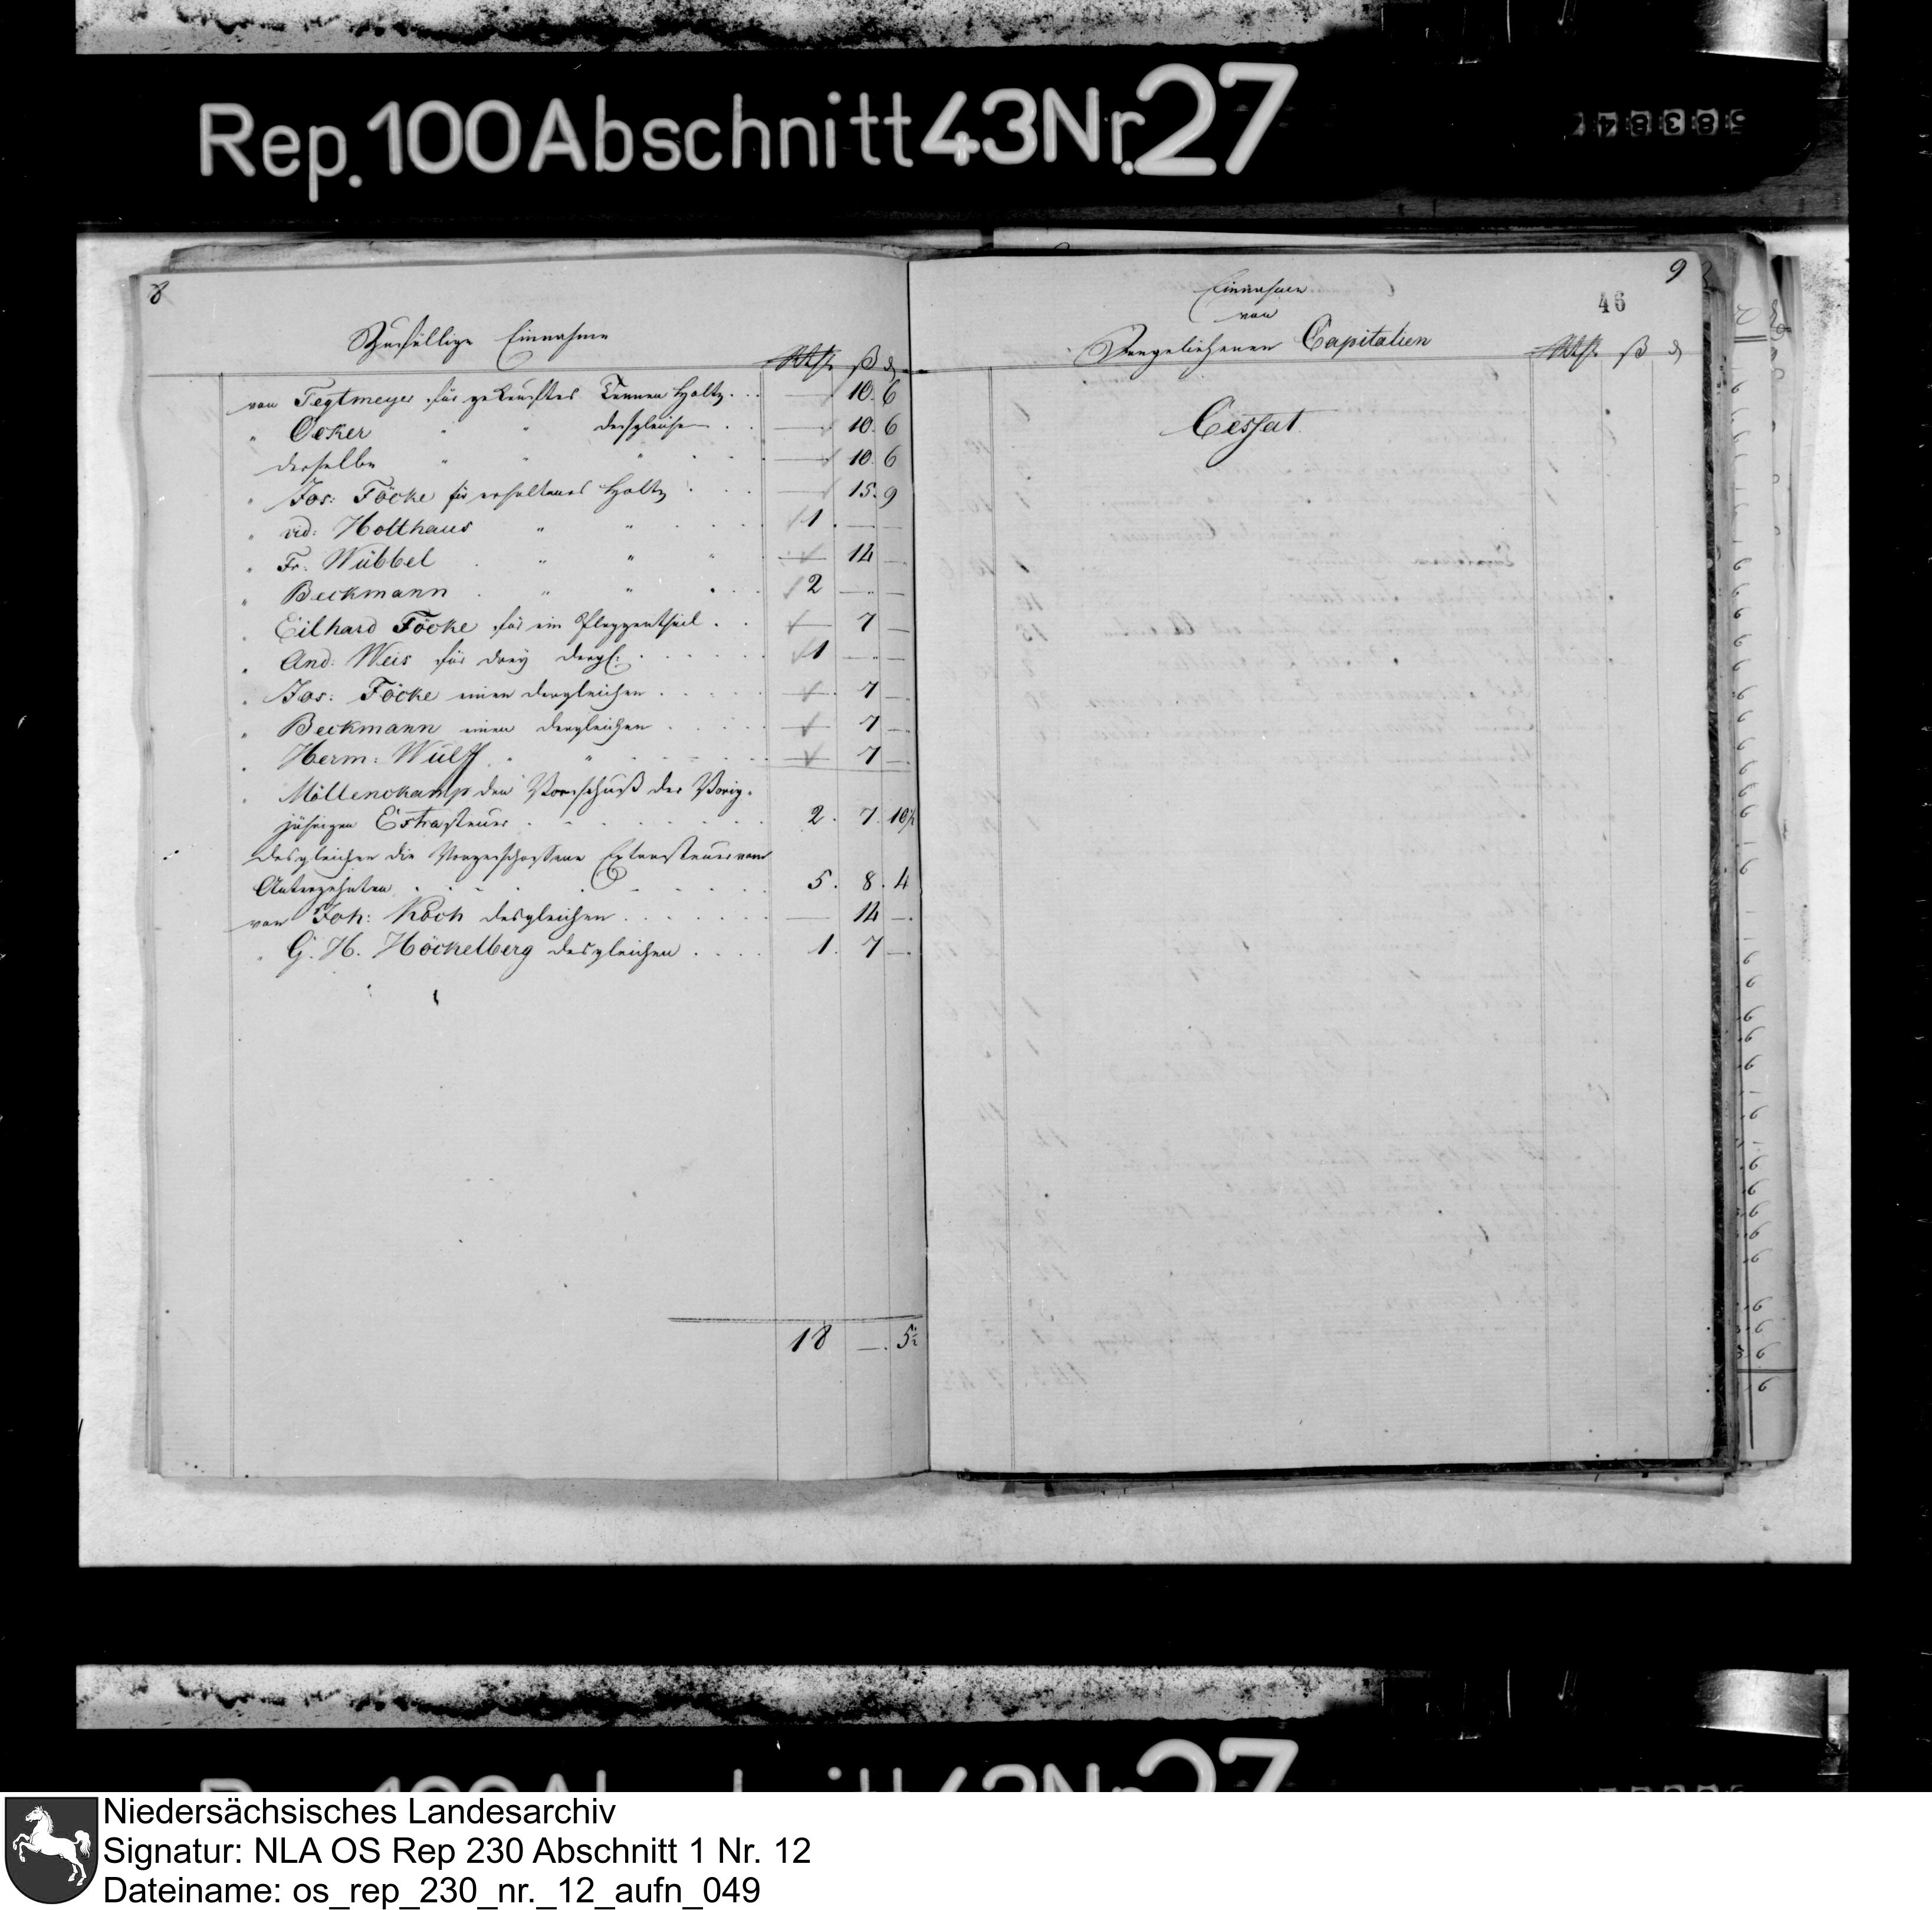 Rep. 100 Abschnitt 43 Nr. 27
8
Zufällige Einnahme
Rthlr ß d
von Tegtmeyer für gekauftes Tannen Holtz . . . — 10. 6
" Ocker " " desgleichen . — 10. 6
derselbe " " " — 10. 6
" Jos: Föcke für erhaltenes Holtz . . . — 15. 9
" vid: Holthaus " " . . . 1. — —
" Fr. Wübbel " " " — 14 —
" Beckmann " " . . 2 — —
" Eilhard Föcke für ein Pflaggentheil . . — 7 —
" And: Weis für drey dergl: . . . . . 1 — —
" Jos: Föcke einen dergleichen . . . . — 7 —
" Beckmann einen dergleichen . . . . — 7 —
" Herm: Wulff " " — 7 —
" Möllenckamp den Vorschuß der Vorig-
jährigen Extrasteuer . . . . . 2. 7. 10½
desgleichen die Vorgeschossene Extrasteuer vom
5. 8. 4
von Joh: Koch desgleichen . . . . . — 14 —
" G. H. Höckelberg desgleichen . . . . 1. 7 —
18 — 5½
9
46
Einnahme
von
Capitalien
Rthlr ß d
Cessat
Niedersächsisches Landesarchiv
Signatur: NLA OS Rep 230 Abschnitt 1 Nr. 12
Dateiname: os_rep_230_nr._12_aufn_049